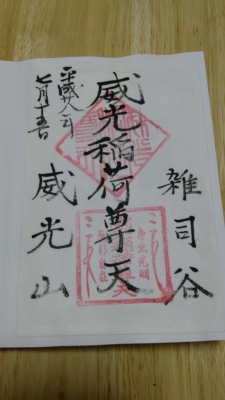 雑司谷
威光稲荷尊天
威光山
平成廿八年
七月十五日